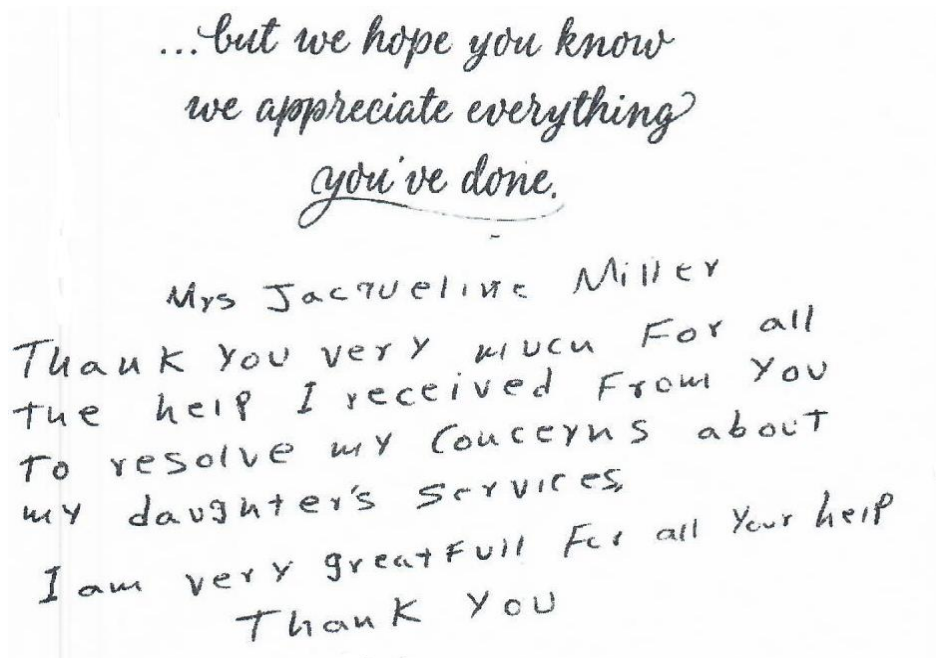 ...but we hope you know
we appreciate everything
you've done.
Mrs Jacqueline Miller
Thank you very much For all
the help I received From you
To resolve my Concerns about
my daughter's services,
I am very greatfull For all your help
Thank you